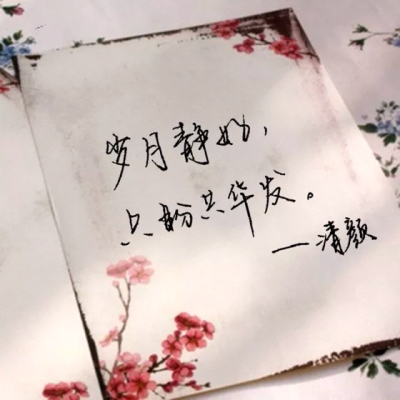 岁月静好,
只盼共华发。
—清颜